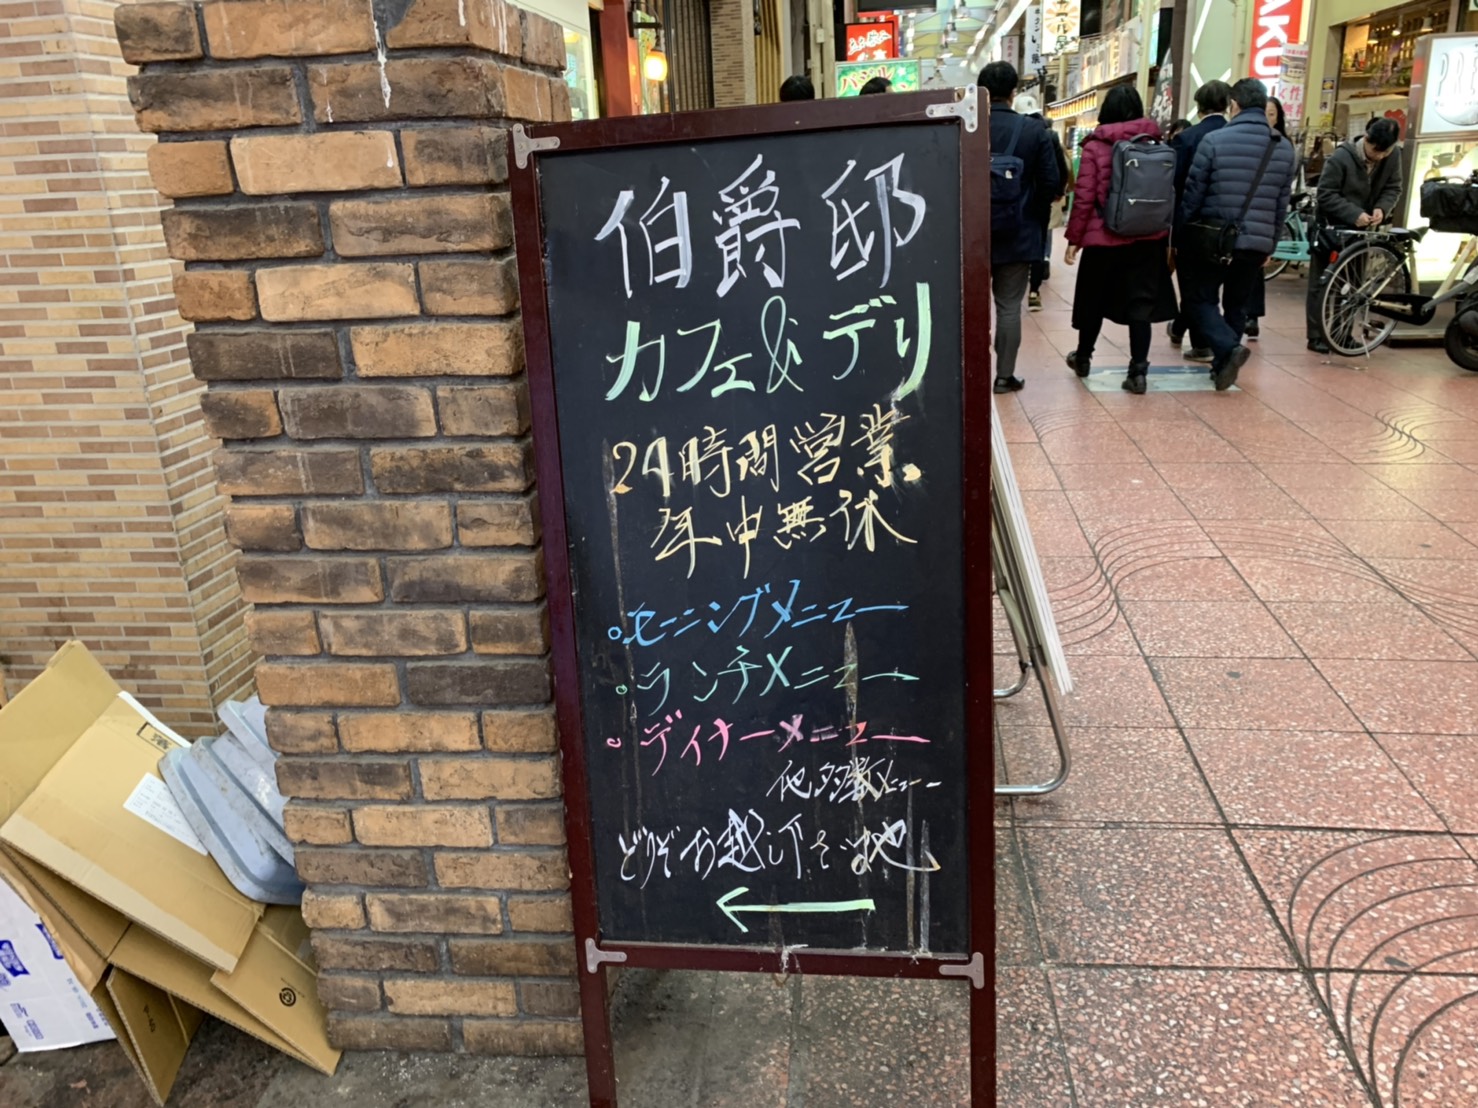 伯爵邸
カフェ&デリ
24時間営業
年中無休
。モーニングメニュー
。ランチメニュー
。ディナーメニュー
他多数メニュー
どうぞお越し下さいませ
←
バジル
AKU
PRE